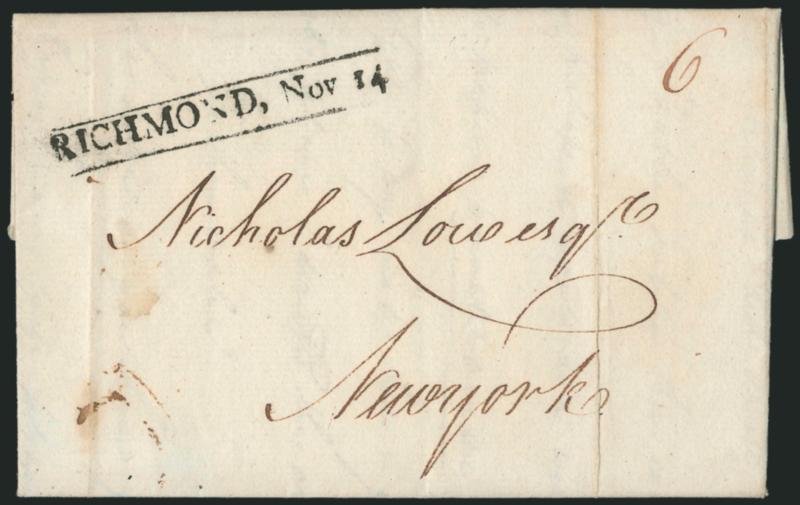 RICHMOND, Nov 14
6
Nicholas Low esqre
Newyork